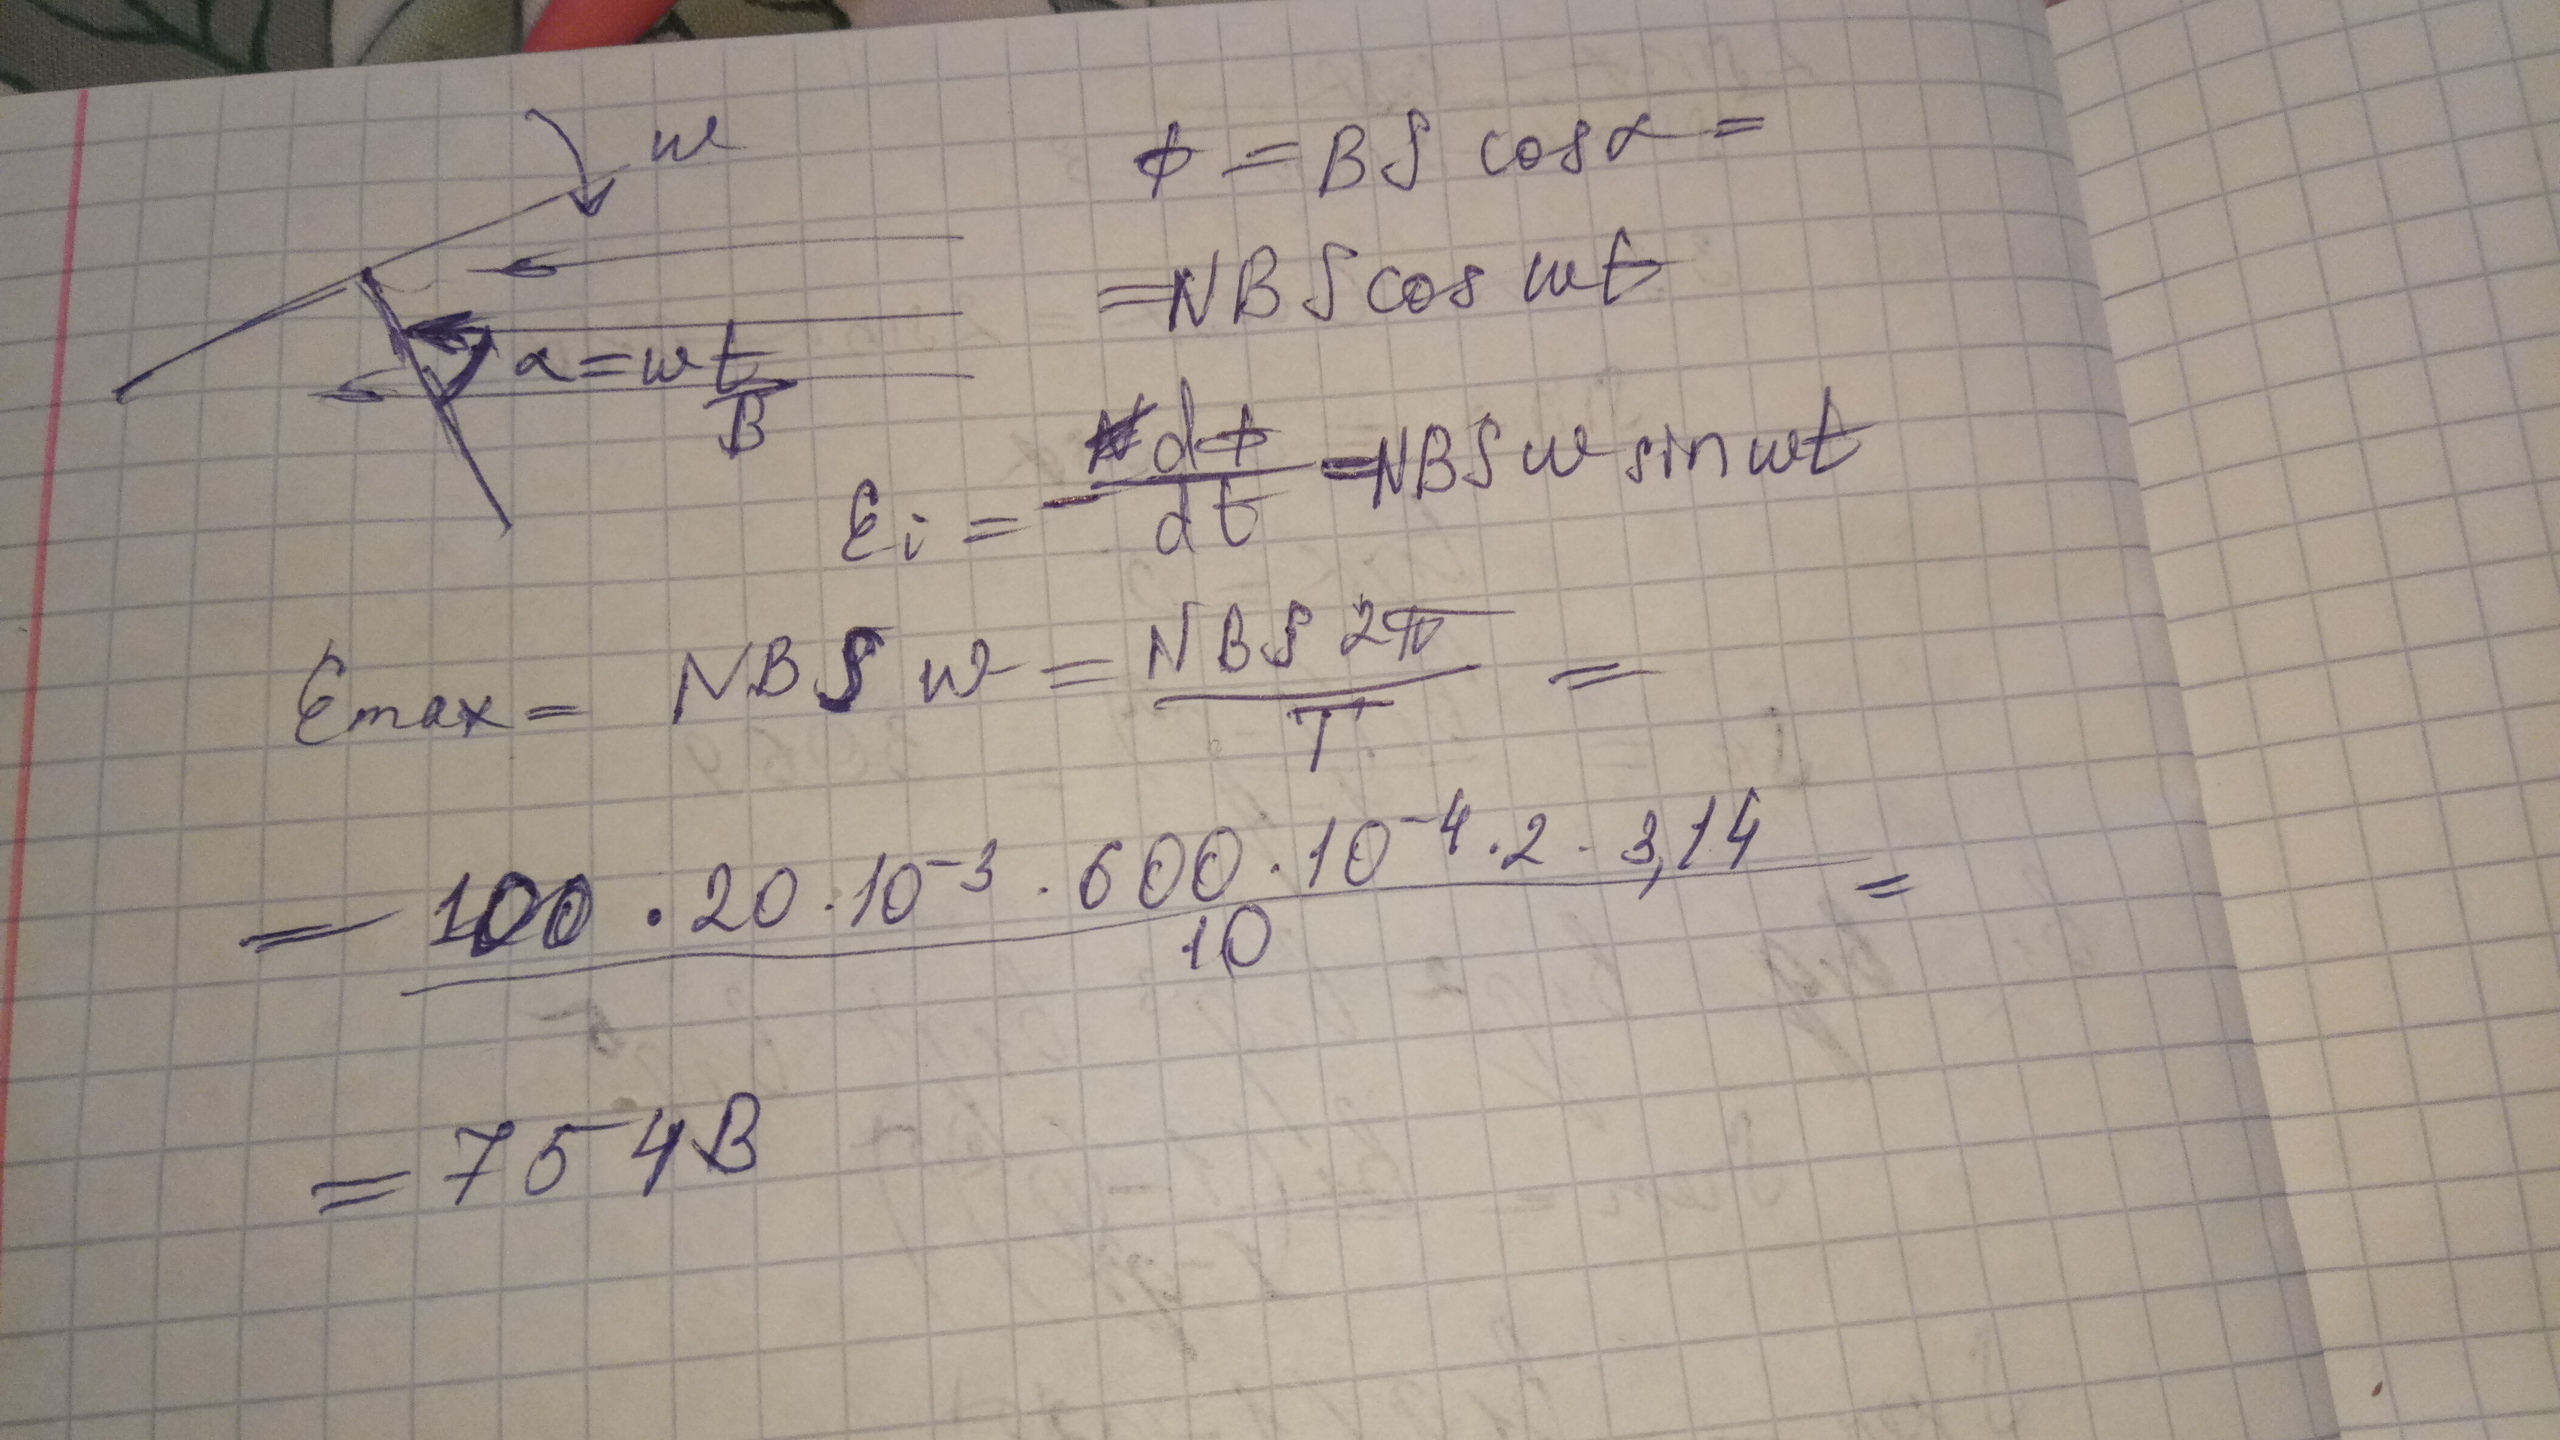 w
α = wt
B
Φ = BS cosα =
= NBS cos wt
Ei = - dΦ/dt = NBS w sin wt
Emax = NBS w = NBS 2π / T =
= 100 · 20 · 10⁻³ · 600 · 10⁻⁴ · 2 · 3,14 / 10 =
= 754 В